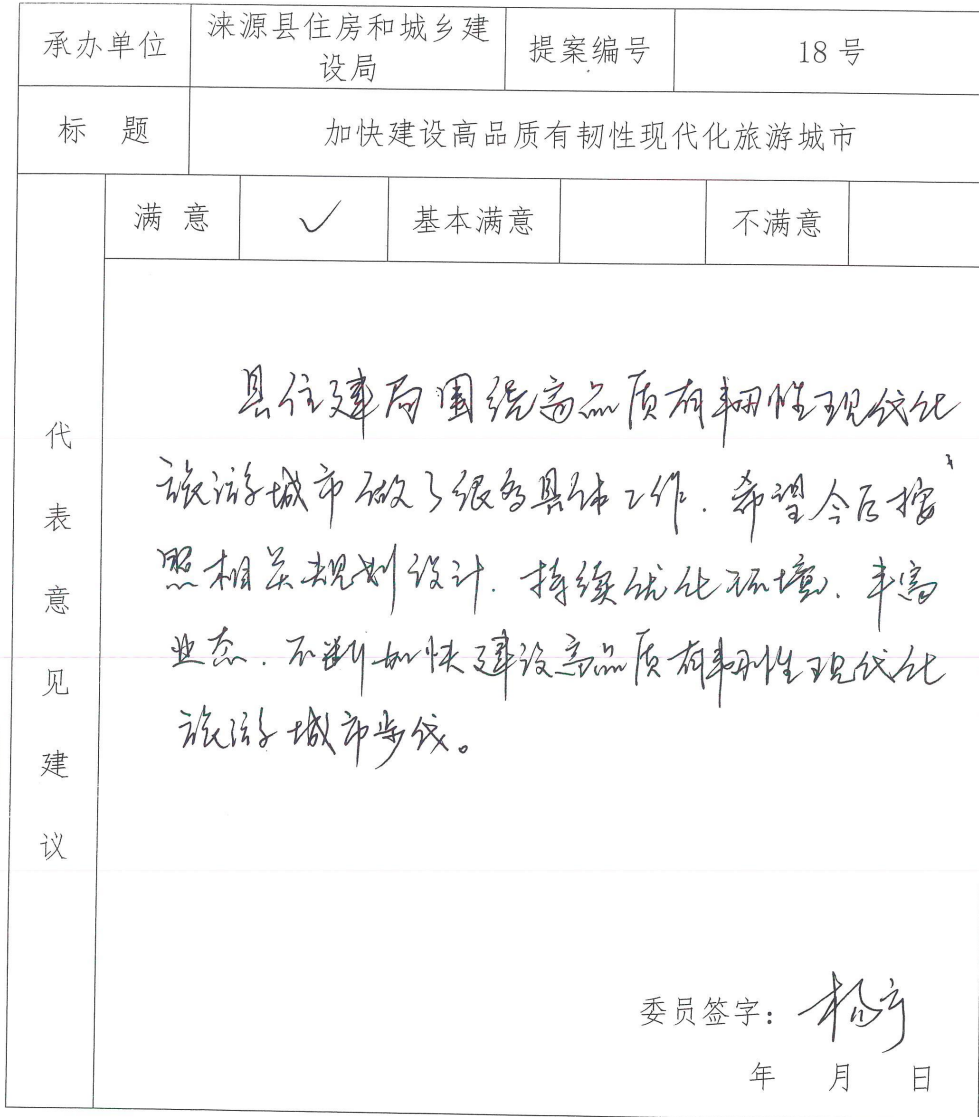 承办单位
涞源县住房和城乡建
设局
提案编号
18 号
标 题
加快建设高品质有韧性现代化旅游城市
满 意
✓
基本满意
不满意
代表意见建议
县住建局围绕高品质有韧性现代化
旅游城市做了很多具体工作.希望今后按
照相关规划设计.持续优化环境、丰富
业态.不断加快建设高品质有韧性现代化
旅游城市步伐。
委员签字:
年 月 日